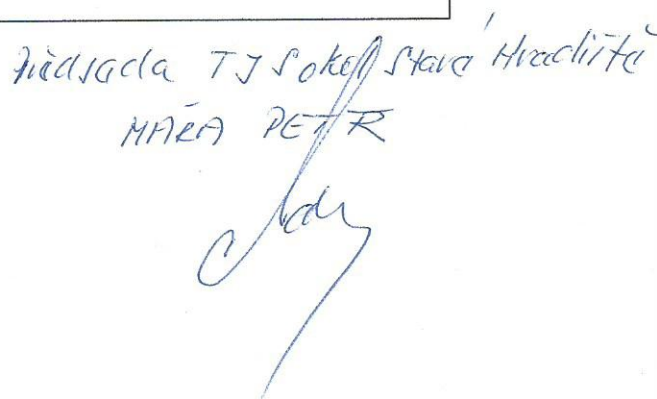 Předsada TJ Sokol Stará Hradiště
MÁRA PETR